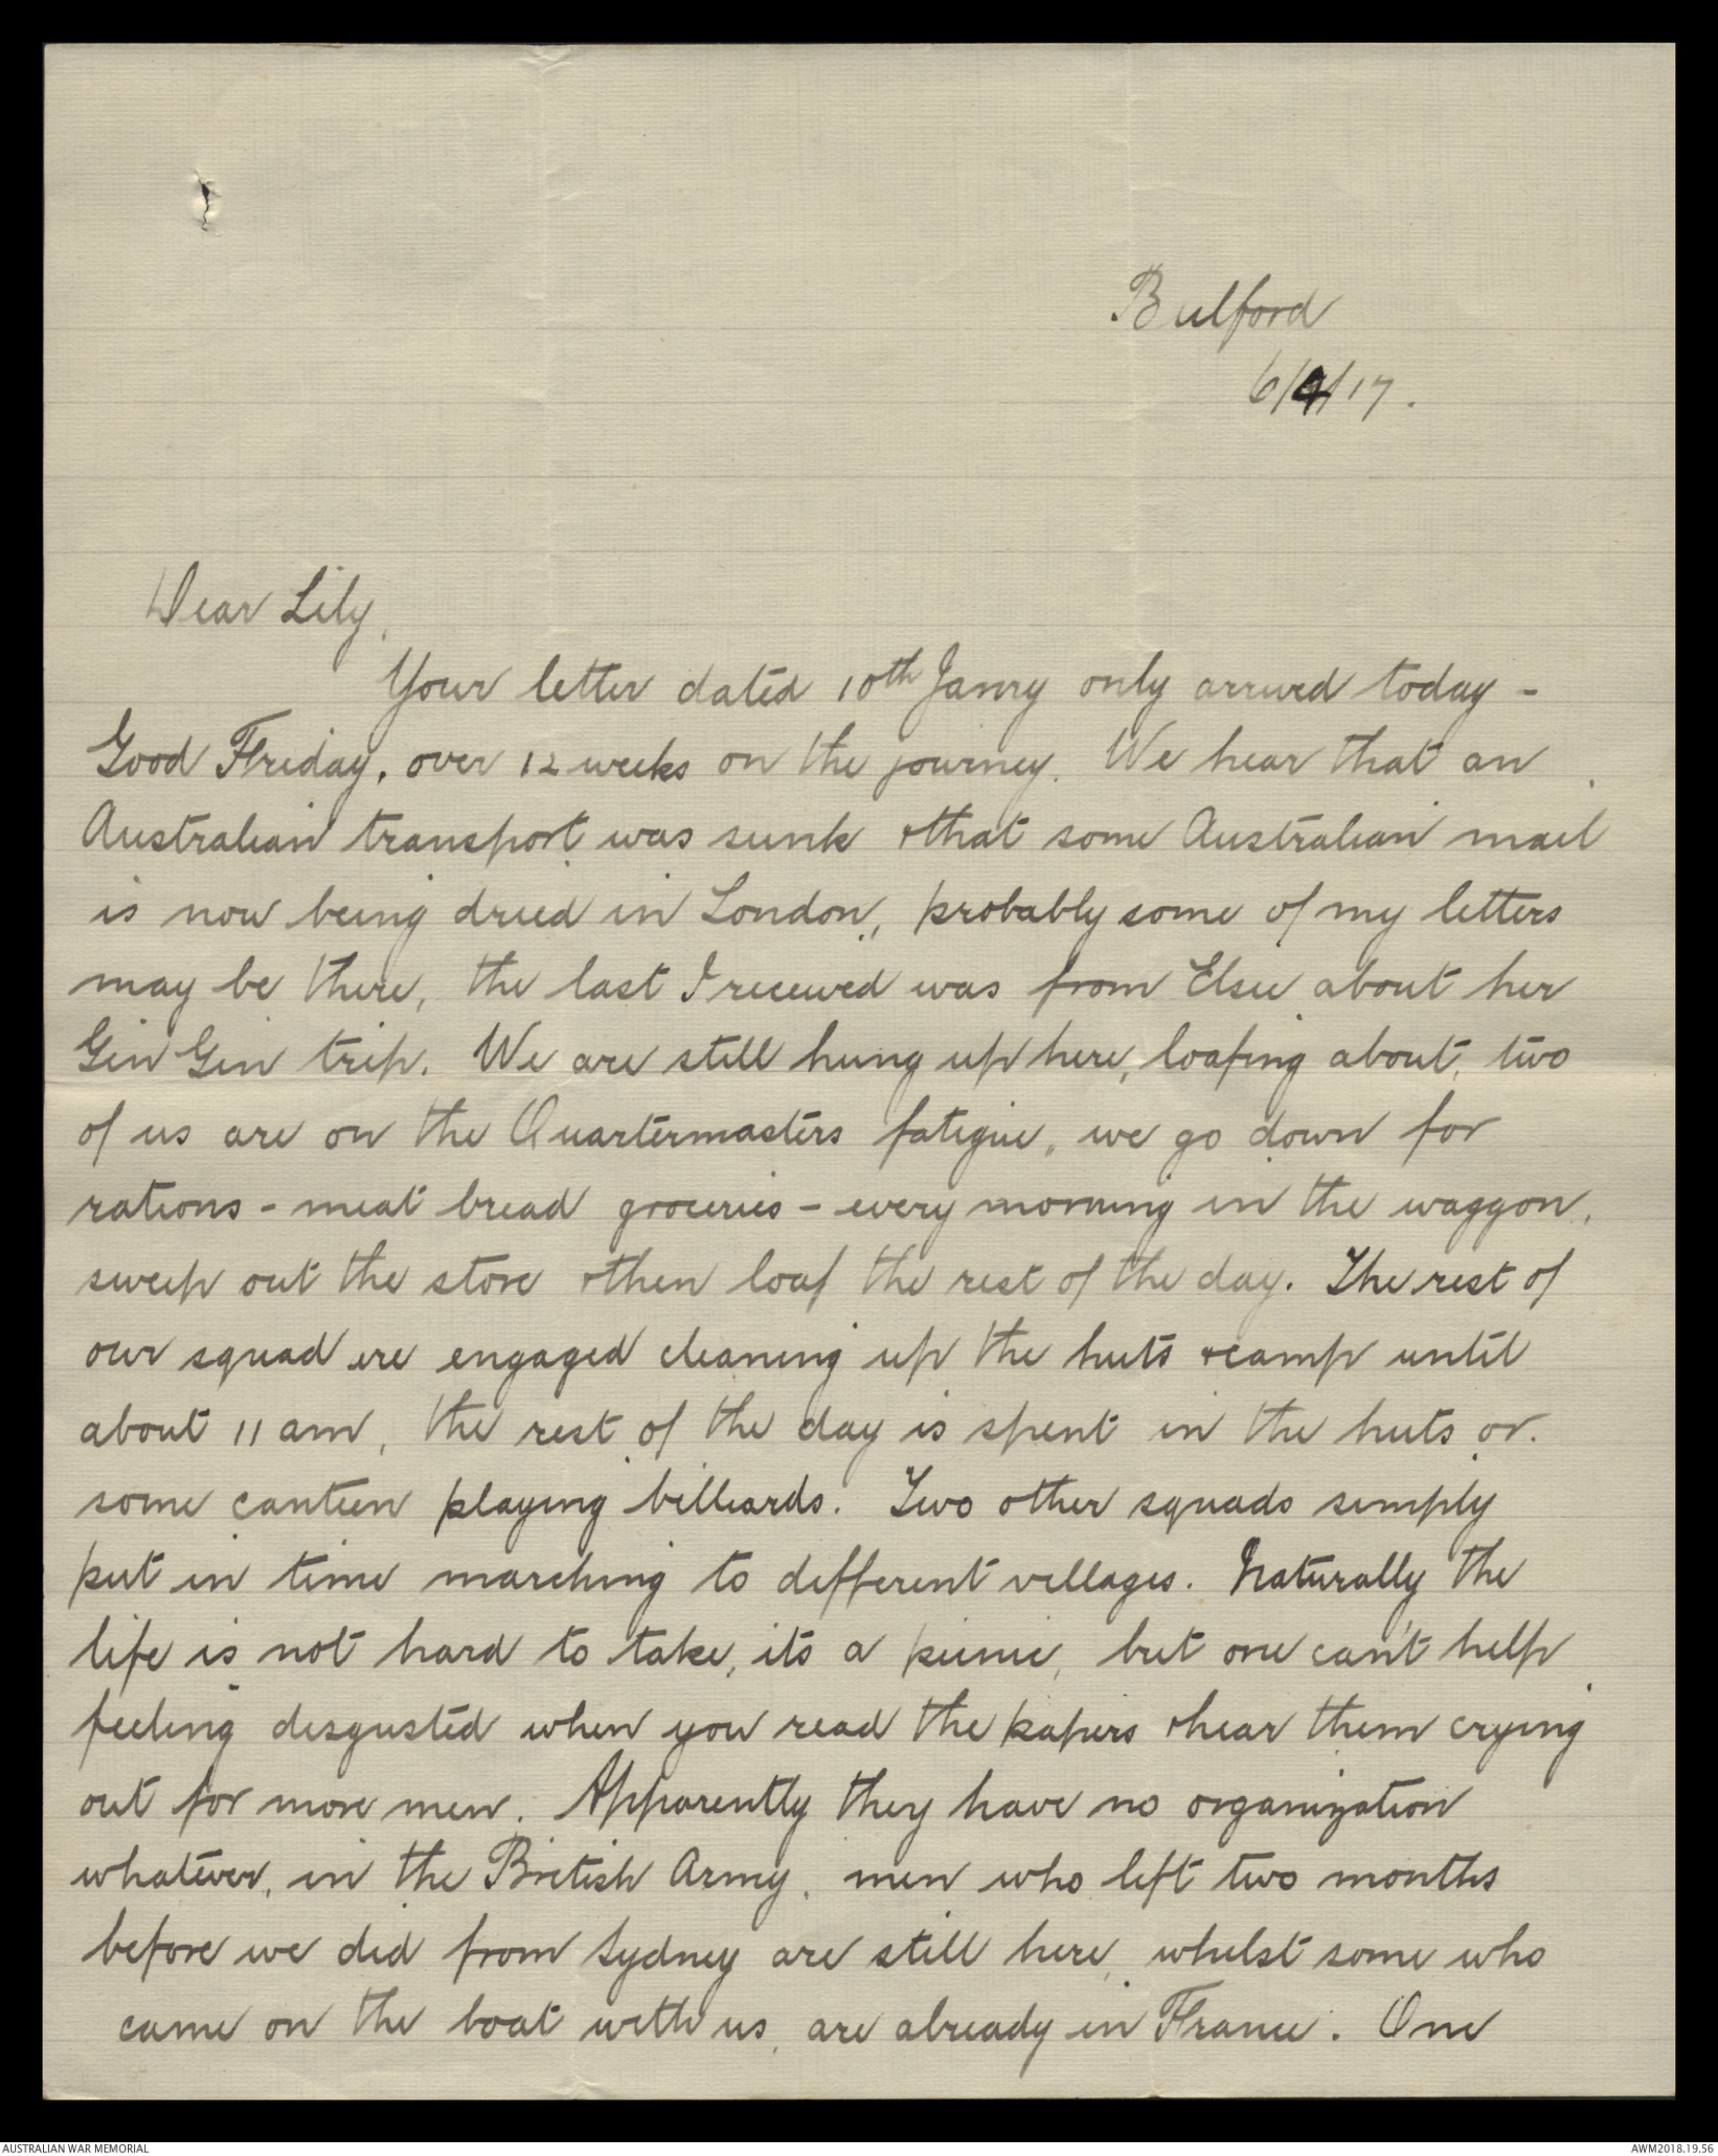 Bulford
6/4/17.
Dear Lily,
Your letter dated 10th Janry only arrived today -
Good Friday, over 12 weeks on the journey. We hear that an
Australian transport was sunk & that some Australian mail
is now being dried in London, probably some of my letters
may be there, the last I received was from Elsie about her
Gin Gin trip. We are still hung up here, loafing about, two
of us are on the Quartermasters fatigue, we go down for
rations - meat bread groceries - every morning in the waggon,
sweep out the store & then loaf the rest of the day. The rest of
our squad are engaged cleaning up the huts & camp until
about 11 am, the rest of the day is spent in the huts or
some canteen playing billiards. Two other squads simply
put in time marching to different villages. Naturally the
life is not hard to take, its a picnic, but one can't help
feeling disgusted when you read the papers & hear them crying
out for more men. Apparently they have no organization
whatever, in the British Army, men who left two months
before we did from Sydney are still here, whilst some who
came on the boat with us, are already in France. One
AUSTRALIAN WAR MEMORIAL
AWM2018.19.56